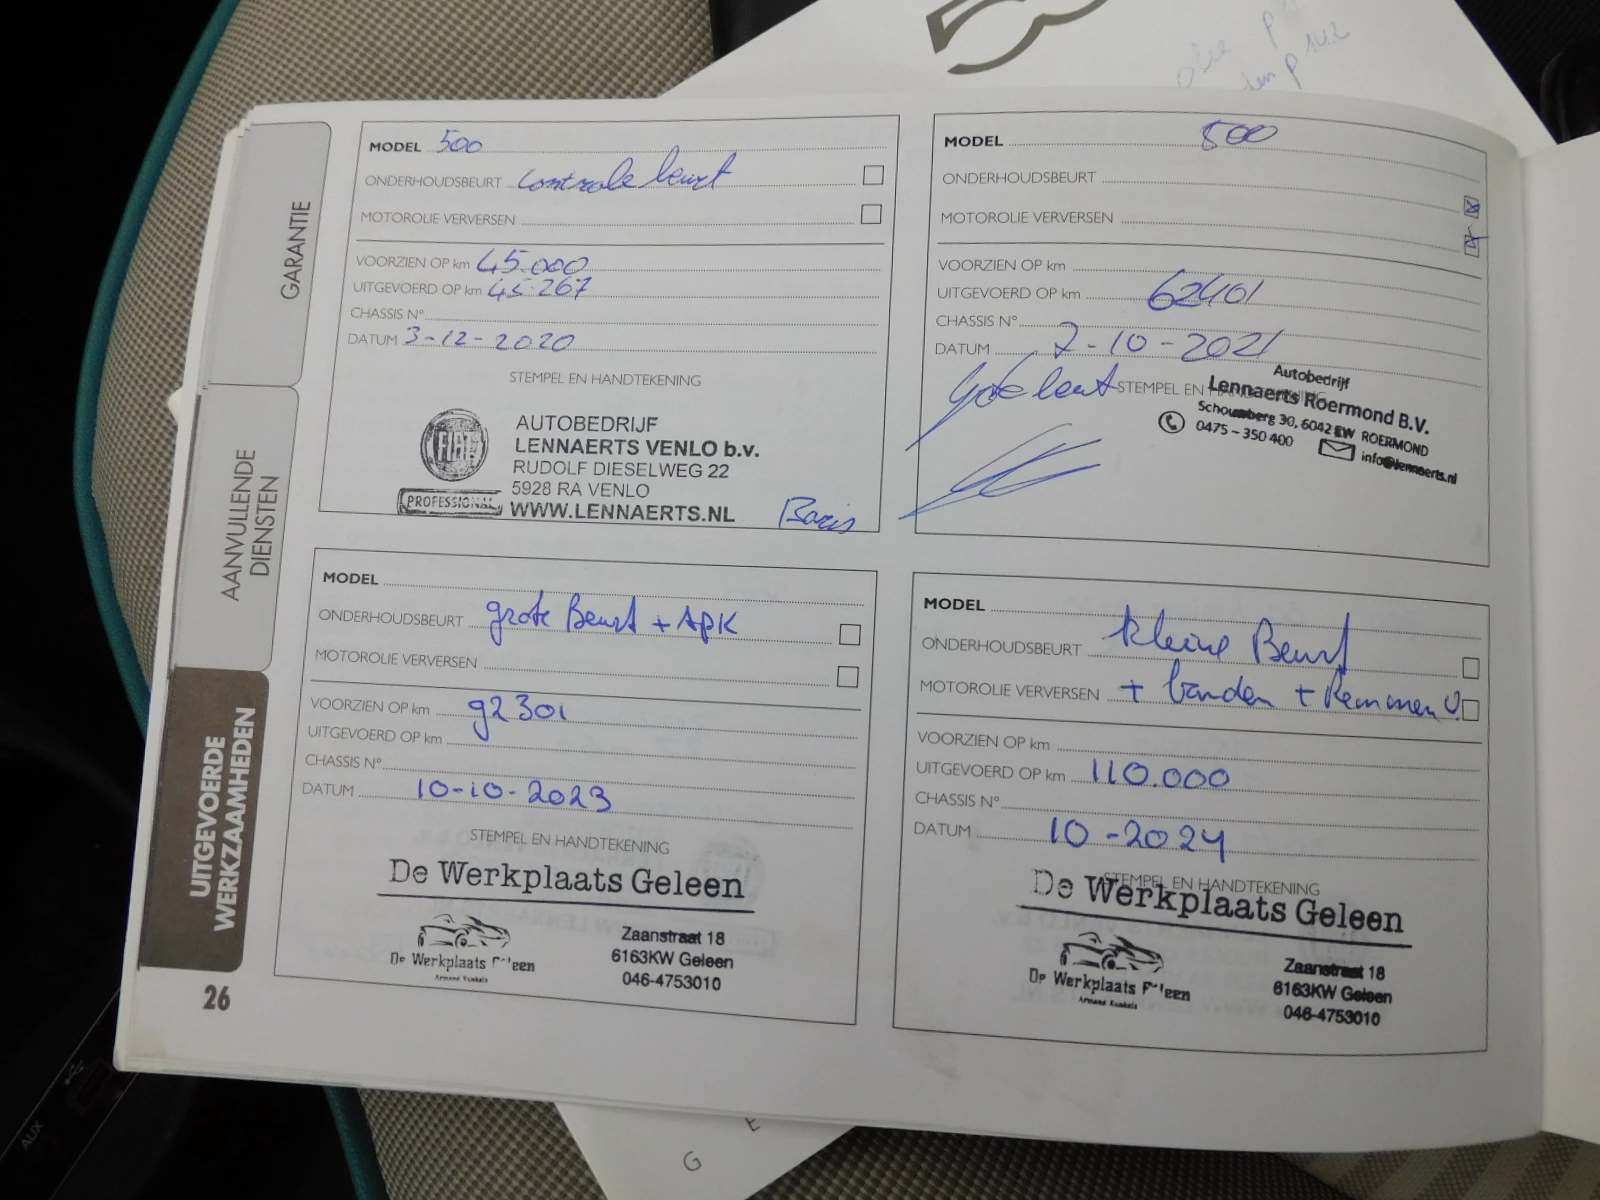 GARANTIE
AANVULLENDE
DIENSTEN
UITGEVOERDE
WERKZAAMHEDEN
26
MODEL 500
ONDERHOUDSBEURT controle beurt
MOTOROLIE VERVERSEN
VOORZIEN OP km 45.000
UITGEVOERD OP km 45.267
CHASSIS N°
DATUM 3-12-2020
STEMPEL EN HANDTEKENING
FIAT
PROFESSIONAL
AUTOBEDRIJF
LENNAERTS VENLO b.v.
RUDOLF DIESELWEG 22
5928 RA VENLO
WWW.LENNAERTS.NL
Baris
MODEL 500
ONDERHOUDSBEURT
MOTOROLIE VERVERSEN
VOORZIEN OP km
UITGEVOERD OP km 62401
CHASSIS N°
DATUM 7-10-2021
STEMPEL EN
Autobedrijf
Lennaerts Roermond B.V.
30, 6042 ROERMOND
0475-350 400
info@lennaerts.nl
MODEL
ONDERHOUDSBEURT grote Beurt + APK
MOTOROLIE VERVERSEN
VOORZIEN OP km 92301
UITGEVOERD OP km
CHASSIS N°
DATUM 10-10-2023
STEMPEL EN HANDTEKENING
De Werkplaats Geleen
De Werkplaats
Zaanstraat 18
6163KW Geleen
046-4753010
MODEL
ONDERHOUDSBEURT kleine Beurt
MOTOROLIE VERVERSEN + banden + Remmen V.
VOORZIEN OP km
UITGEVOERD OP km 110.000
CHASSIS N°
DATUM 10-2024
STEMPEL EN HANDTEKENING
De Werkplaats Geleen
De Werkplaats
Zaanstraat 18
6163KW Geleen
046-4753010
AUX
G E